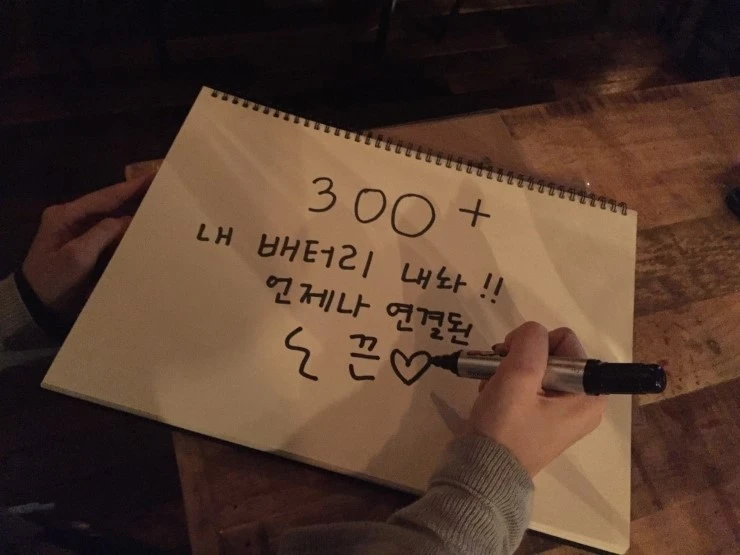 300+
내 배터리 내놔!!
언제나 연결된
노끈♡